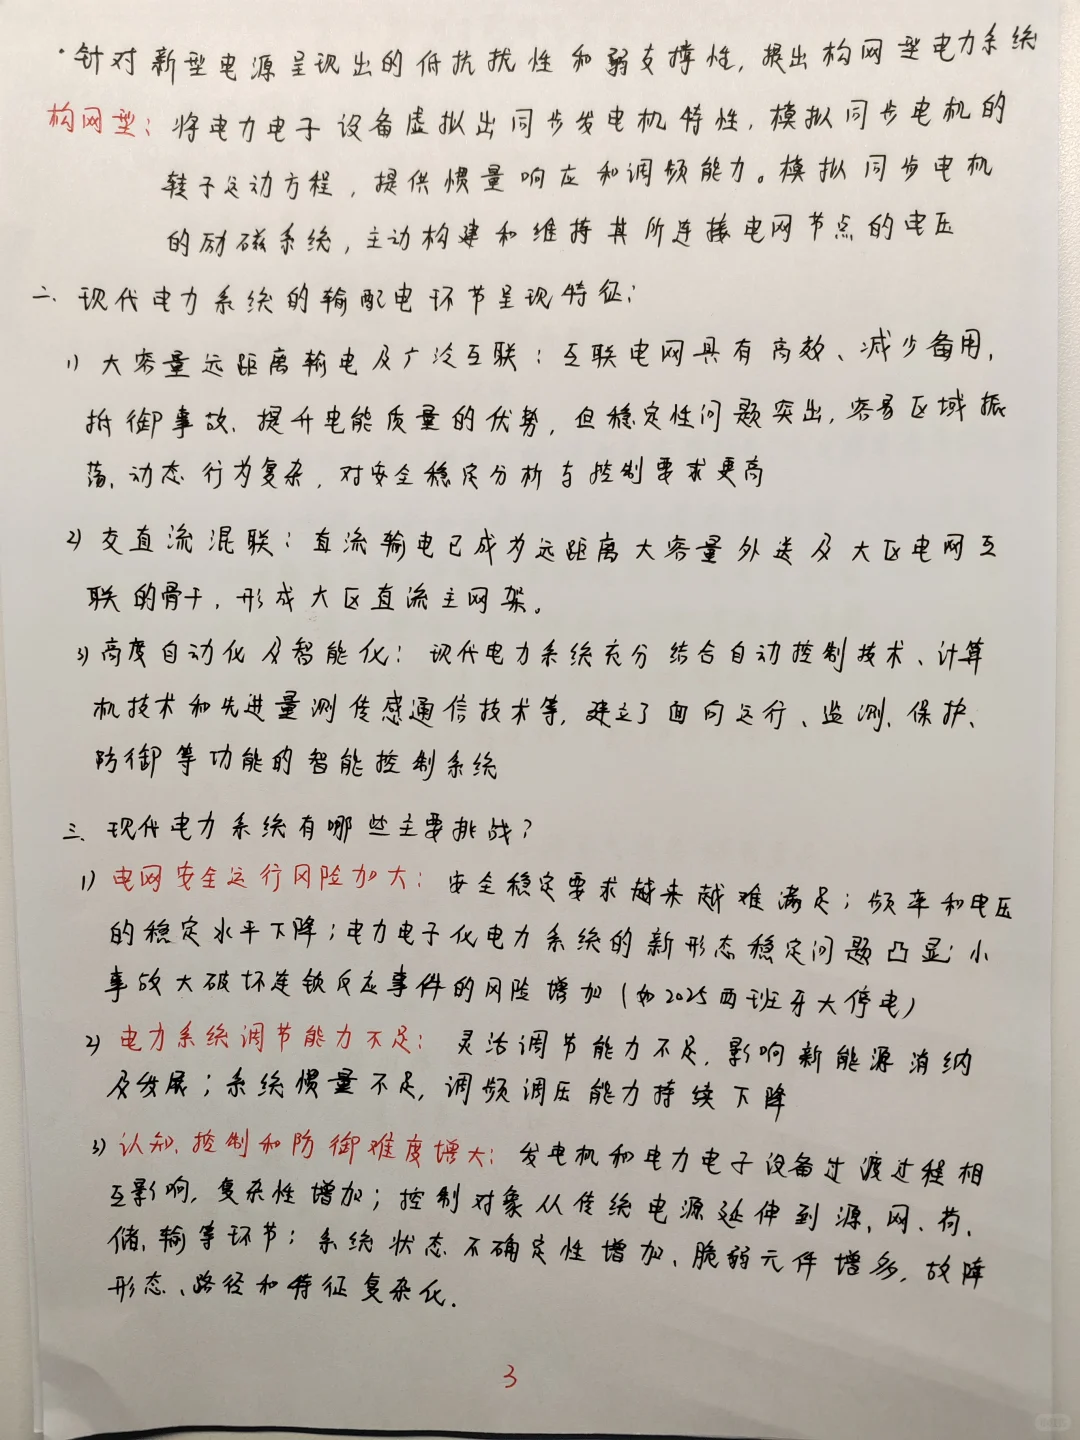 ·针对新型电源呈现出的低抗扰性和弱支撑性,提出构网型电力系统
构网型:将电力电子设备虚拟出同步发电机特性,模拟同步电机的
转子运动方程,提供惯量响应和调频能力。模拟同步电机
的励磁系统,主动构建和维持其所连接电网节点的电压
二、现代电力系统的输配电环节呈现特征:
1) 大容量远距离输电及广泛互联:互联电网具有高效、减少备用,
抵御事故、提升电能质量的优势,但稳定性问题突出,容易区域振
荡,动态行为复杂,对安全稳定分析与控制要求更高
2) 交直流混联:直流输电已成为远距离大容量外送及大区电网互
联的骨干,形成大区直流主网架。
3) 高度自动化及智能化:现代电力系统充分结合自动控制技术、计算
机技术和先进量测传感通信技术等,建立了面向运行、监测、保护、
防御等功能的智能控制系统
三、现代电力系统有哪些主要挑战?
1) 电网安全运行风险加大:安全稳定要求越来越难满足;频率和电压
的稳定水平下降;电力电子化电力系统的新形态稳定问题凸显;小
事故大破坏连锁反应事件的风险增加(如2025西班牙大停电)
2) 电力系统调节能力不足:灵活调节能力不足,影响新能源消纳
及发展;系统惯量不足,调频调压能力持续下降
3) 认知、控制和防御难度增大:发电机和电力电子设备过渡过程相
互影响,复杂性增加;控制对象从传统电源延伸到源、网、荷、
储、输等环节;系统状态不确定性增加、脆弱元件增多,故障
形态、路径和特征复杂化.
3